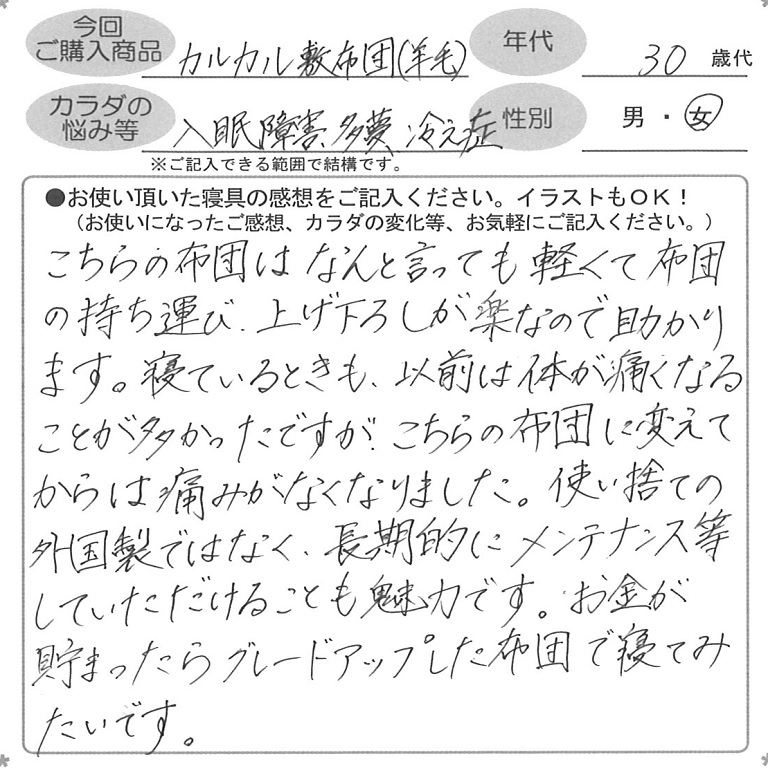 今回 ご購入商品 カルカル敷布団(羊毛) 年代 30 歳代
カラダの 悩み等 入眠障害、多夢、冷え症 性別 男・女
※ご記入できる範囲で結構です。
●お使い頂いた寝具の感想をご記入ください。イラストもOK！
（お使いになったご感想、カラダの変化等、お気軽にご記入ください。）
こちらの布団はなんと言っても軽くて布団
の持ち運び、上げ下ろしが楽なので助かり
ます。寝ているときも、以前は体が痛くなる
ことが多かったですが、こちらの布団に変えて
からは痛みがなくなりました。使い捨ての
外国製ではなく、長期的にメンテナンス等
していただけることも魅力です。お金が
貯まったらグレードアップした布団で寝てみ
たいです。